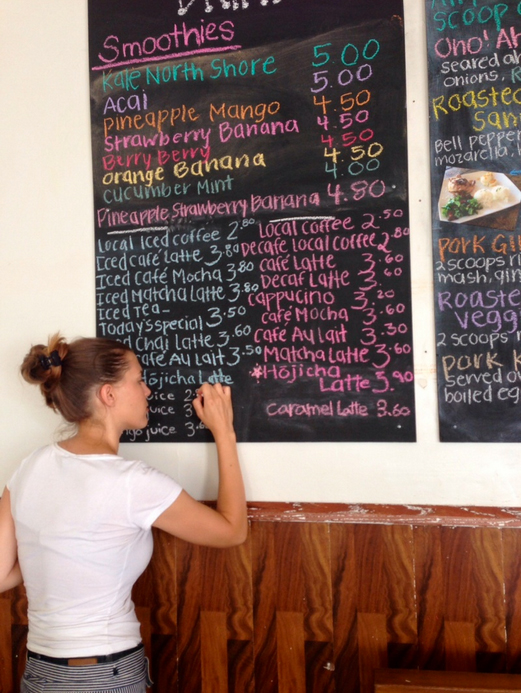 Smoothies
Kale North Shore 5.00
Acai 5.00
Pineapple Mango 4.50
Strawberry Banana 4.50
Berry Berry 4.50
Orange Banana 4.50
Cucumber Mint 4.00
Pineapple Strawberry Banana 4.80
Local Iced coffee 2.80
Iced café Latte 3.80
Iced Café Mocha 3.80
Iced Matcha Latte 3.80
Iced Tea-
Today's special 3.50
Chai Latte 3.60
café Au Lait 3.50
Hojicha Latte
juice
juice
juice
Local coffee 2.50
Decafe local coffee 2.80
café Latte 3.60
Decaf Latte 3.60
cappucino 3.20
café Mocha 3.60
café Au lait 3.30
Matcha Latte 3.60
*Hojicha
Latte 3.90
Caramel Latte 3.60
scoop
Ono! Ah
seared
onions.
Roasted
Bell pepper
mozarella.
Pork
2 scoops
mash,
Roaste
vegg
2 scoops
Pork
served
boiled